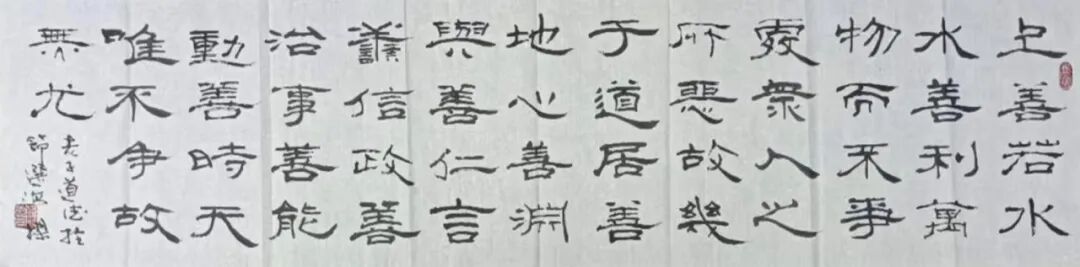 上善若水
水善利萬
物而不爭
處衆人之
所惡故幾
于道居善
地心善淵
與善仁言
譱信政善
治事善能
動善時天
唯不争故
無尤
老子道德經
節選